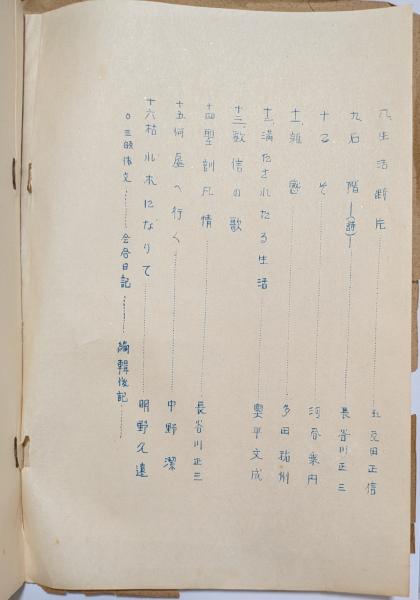 八、生活断片 五反田正信
九、石階（詩） 長谷川正三
十、そ 河合
十一、雑感 多田
十二、満たされたる生活 奥平文成
十三、歌信の歌
十四、聖訓凡情 長谷川正三
十五、何処へ行く 中野潔
十六、枯れ木になりて 明野久遠
○三部経文 会合日記 編輯後記